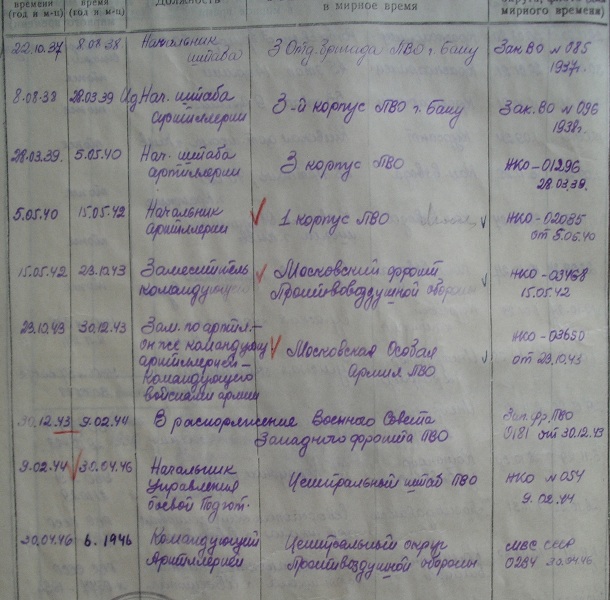 времени (год и м-ц)
(год и м-ц)
Должность
в мирное время
мирного времени)
22.10.37 8.08.38 Начальник штаба 3 Отд. Бригада ПВО г. Баку Зак.ВО № 085 1937г.
8.08.38 28.03.39 Ид Нач. штаба артиллерии 3-й корпус ПВО г. Баку Зак. ВО № 096 1938г.
28.03.39. 5.05.40 Нач. штаба артиллерии 3 корпус ПВО НКО-01296 28.03.39.
5.05.40 15.05.42 Начальник артиллерии 1 корпус ПВО НКО-02085 от 5.06.40
15.05.42 23.12.43 Заместитель командующего Московский фронт Противовоздушной обороны НКО-03468 15.05.42
23.12.43 30.12.43 Зам. по артил.- он же командующ артиллерией- командующего войсками армии Московская Особая Армия ПВО НКО-03650 от 23.12.43
30.12.43 9.02.44 В распоряжение Военного Совета Западного фронта ПВО Зап. фр. ПВО 0181 от 30.12.43
9.02.44 30.04.46 Начальник управления боевой подгот. Центральный штаб ПВО НКО № 054 9.02.44
30.04.46 6.1946 Командующий Артиллерией Центральный округ Противовоздушной обороны МВС СССР 0284 30.04.46.